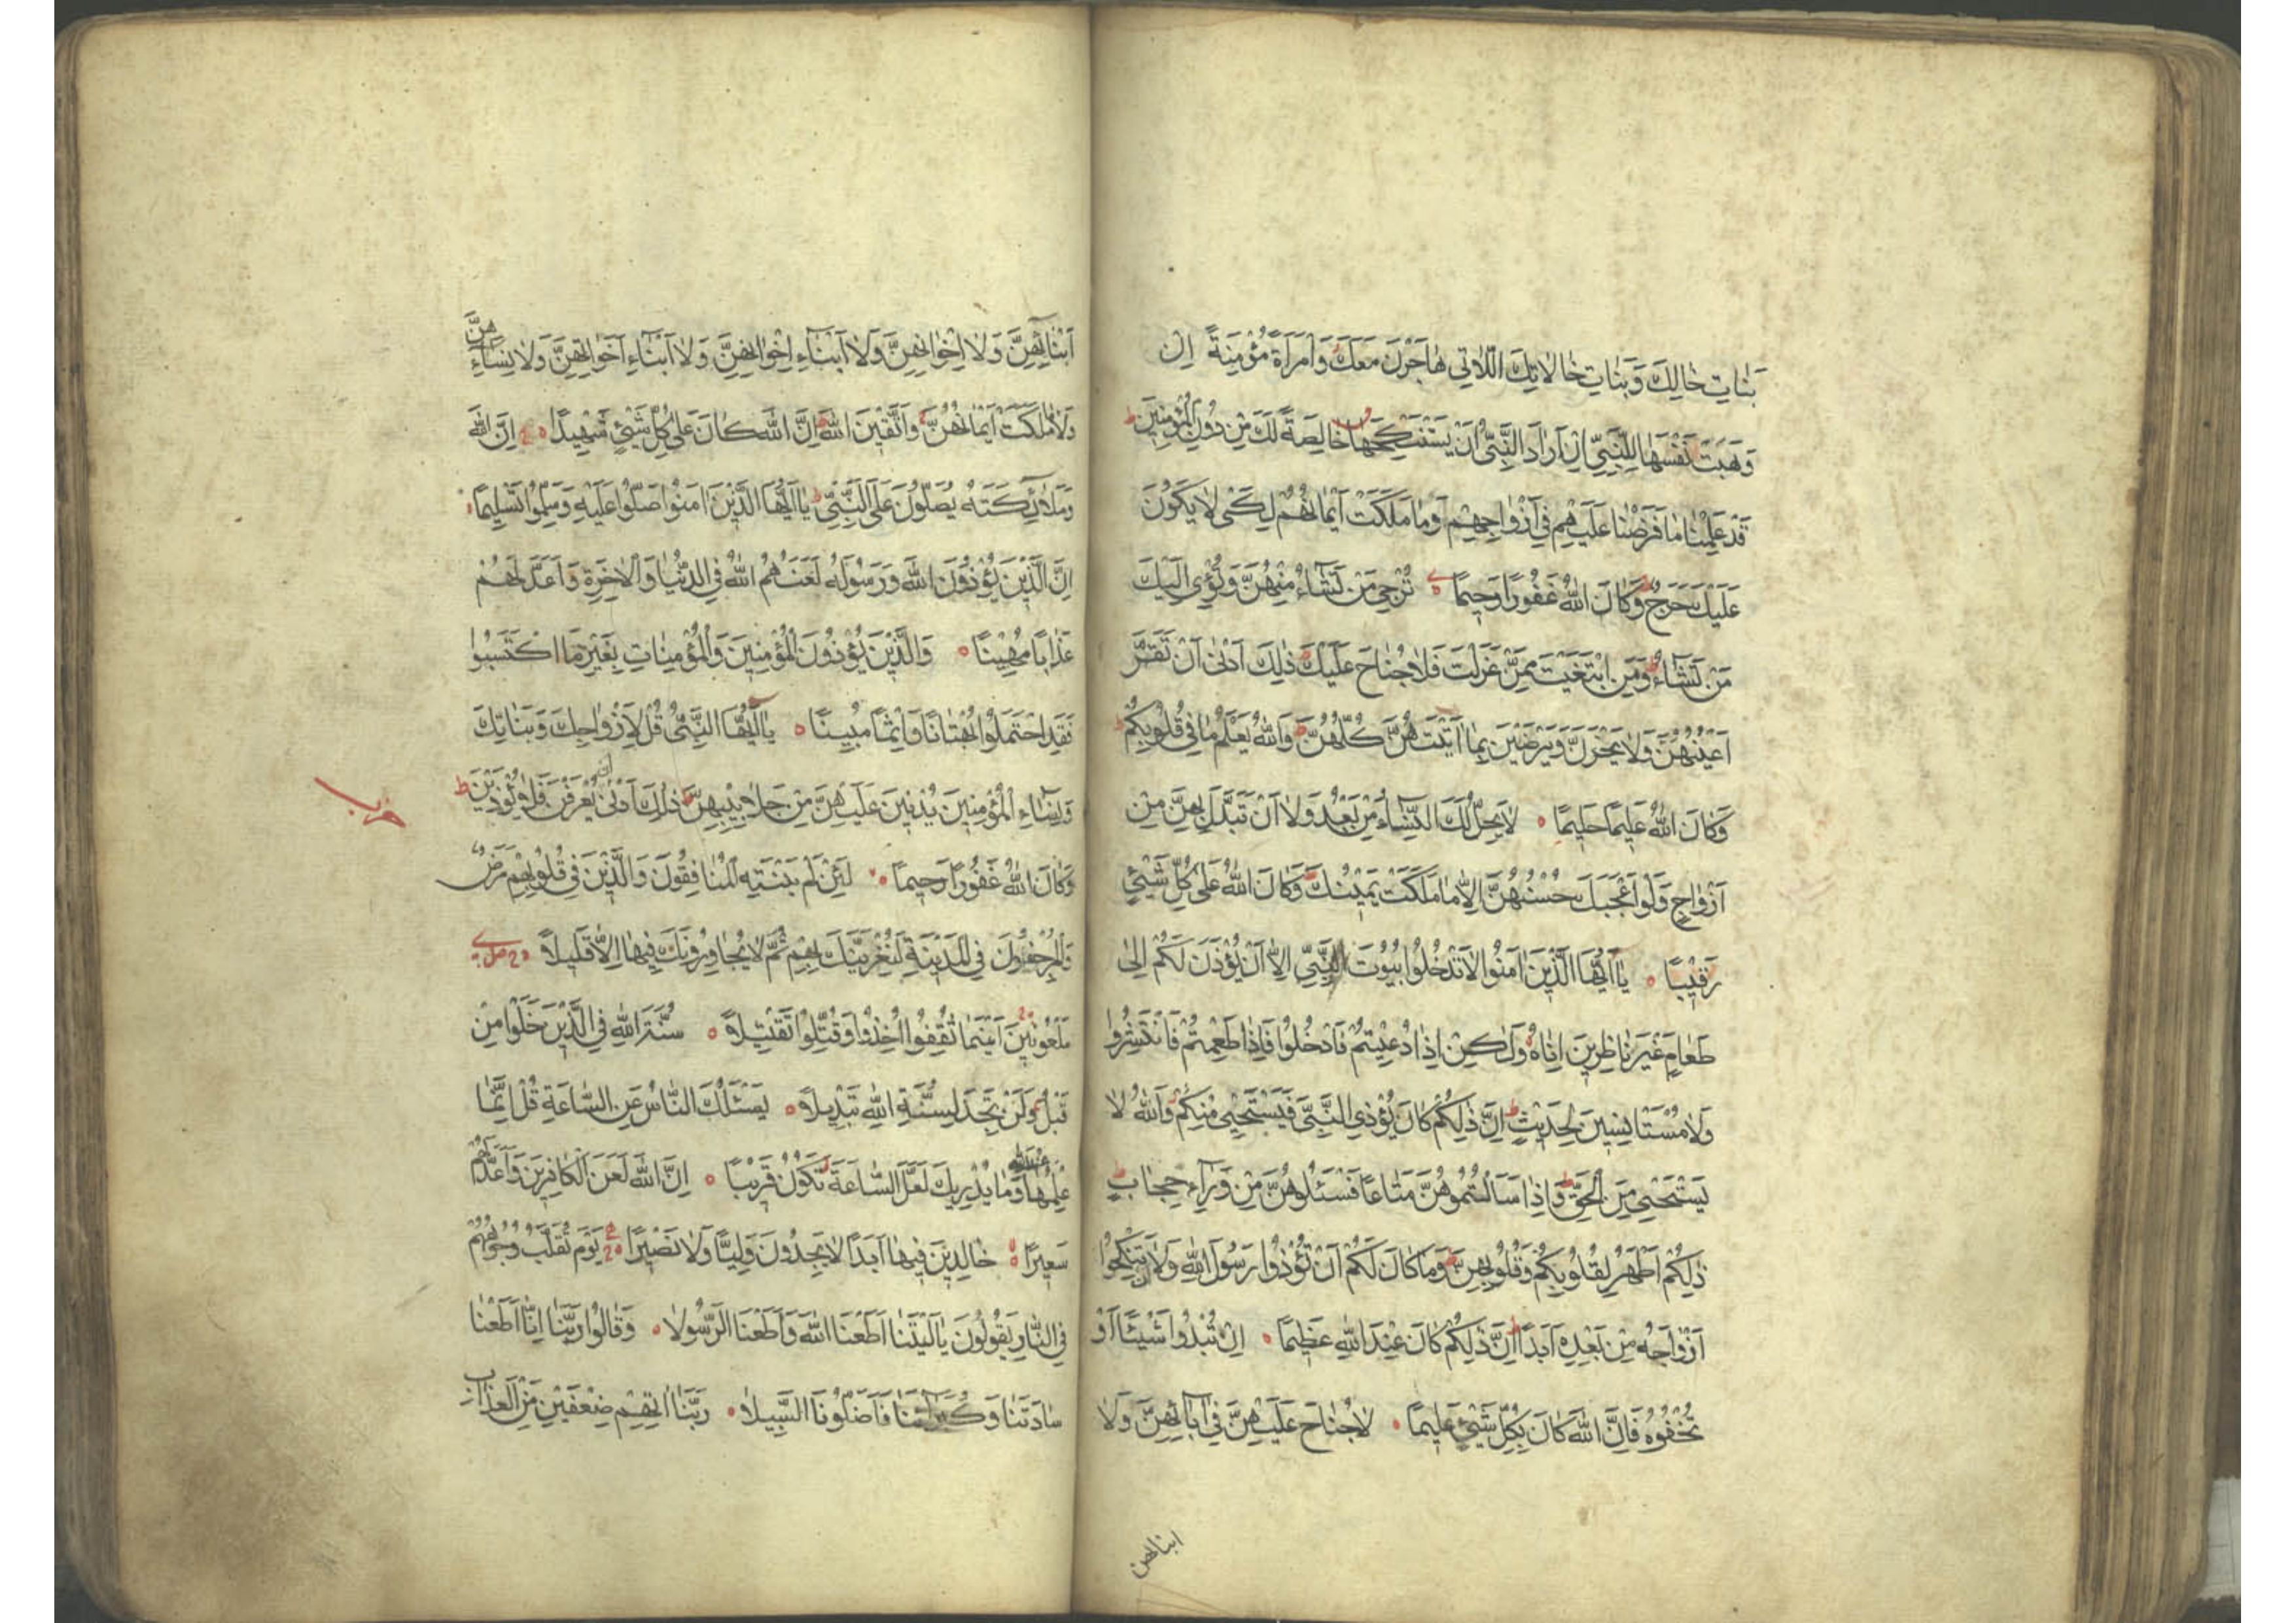 بَنَاتِ خَالِكَ وَبَنَاتِ خَالَاتِكَ اللَّاتِي هَاجَرْنَ مَعَكَ وَامْرَأَةً مُؤْمِنَةً إِنْ
وَهَبَتْ نَفْسَهَا لِلنَّبِيِّ إِنْ أَرَادَ النَّبِيُّ أَنْ يَسْتَنْكِحَهَا خَالِصَةً لَكَ مِنْ دُونِ الْمُؤْمِنِينَ ط
قَدْ عَلِمْنَا مَا فَرَضْنَا عَلَيْهِمْ فِي أَزْوَاجِهِمْ وَمَا مَلَكَتْ أَيْمَانُهُمْ لِكَيْ لَا يَكُونَ
عَلَيْكَ حَرَجٌ وَكَانَ اللَّهُ غَفُورًا رَحِيمًا تُرْجِي مَنْ تَشَاءُ مِنْهُنَّ وَتُؤْوِي إِلَيْكَ
مَنْ تَشَاءُ ط وَمَنِ ابْتَغَيْتَ مِمَّنْ عَزَلْتَ فَلَا جُنَاحَ عَلَيْكَ ط ذَلِكَ أَدْنَى أَنْ تَقَرَّ
أَعْيُنُهُنَّ وَلَا يَحْزَنَّ وَيَرْضَيْنَ بِمَا آتَيْتَهُنَّ كُلُّهُنَّ ط وَاللَّهُ يَعْلَمُ مَا فِي قُلُوبِكُمْ ط
وَكَانَ اللَّهُ عَلِيمًا حَلِيمًا لَا يَحِلُّ لَكَ النِّسَاءُ مِنْ بَعْدُ وَلَا أَنْ تَبَدَّلَ بِهِنَّ مِنْ
أَزْوَاجٍ وَلَوْ أَعْجَبَكَ حُسْنُهُنَّ إِلَّا مَا مَلَكَتْ يَمِينُكَ ط وَكَانَ اللَّهُ عَلَى كُلِّ شَيْئٍ
رَقِيبًا يَا أَيُّهَا الَّذِينَ آمَنُوا لَا تَدْخُلُوا بُيُوتَ النَّبِيِّ إِلَّا أَنْ يُؤْذَنَ لَكُمْ إِلَى
طَعَامٍ غَيْرَ نَاظِرِينَ إِنَاهُ وَلَكِنْ إِذَا دُعِيتُمْ فَادْخُلُوا فَإِذَا طَعِمْتُمْ فَانْتَشِرُوا
وَلَا مُسْتَأْنِسِينَ لِحَدِيثٍ ط إِنَّ ذَلِكُمْ كَانَ يُؤْذِي النَّبِيَّ فَيَسْتَحْيِي مِنْكُمْ وَاللَّهُ لَا
يَسْتَحْيِي مِنَ الْحَقِّ ط وَإِذَا سَأَلْتُمُوهُنَّ مَتَاعًا فَسْئَلُوهُنَّ مِنْ وَرَاءِ حِجَابٍ ط
ذَلِكُمْ أَطْهَرُ لِقُلُوبِكُمْ وَقُلُوبِهِنَّ ط وَمَا كَانَ لَكُمْ أَنْ تُؤْذُوا رَسُولَ اللَّهِ وَلَا أَنْ تَنْكِحُوا
أَزْوَاجَهُ مِنْ بَعْدِهِ أَبَدًا ط إِنَّ ذَلِكُمْ كَانَ عِنْدَ اللَّهِ عَظِيمًا إِنْ تُبْدُوا شَيْئًا أَوْ
تُخْفُوهُ فَإِنَّ اللَّهَ كَانَ بِكُلِّ شَيْئٍ عَلِيمًا لَا جُنَاحَ عَلَيْهِنَّ فِي آبَائِهِنَّ وَلَا
ابنائهن
أَبْنَائِهِنَّ وَلَا إِخْوَانِهِنَّ وَلَا أَبْنَاءِ إِخْوَانِهِنَّ وَلَا أَبْنَاءِ أَخَوَاتِهِنَّ وَلَا نِسَائِهِنَّ
وَلَا مَا مَلَكَتْ أَيْمَانُهُنَّ وَاتَّقِينَ اللَّهَ إِنَّ اللَّهَ كَانَ عَلَى كُلِّ شَيْئٍ شَهِيدًا إِنَّ اللَّهَ
وَمَلَائِكَتَهُ يُصَلُّونَ عَلَى النَّبِيِّ ط يَا أَيُّهَا الَّذِينَ آمَنُوا صَلُّوا عَلَيْهِ وَسَلِّمُوا تَسْلِيمًا
إِنَّ الَّذِينَ يُؤْذُونَ اللَّهَ وَرَسُولَهُ لَعَنَهُمُ اللَّهُ فِي الدُّنْيَا وَالْآخِرَةِ وَأَعَدَّ لَهُمْ
عَذَابًا مُهِينًا وَالَّذِينَ يُؤْذُونَ الْمُؤْمِنِينَ وَالْمُؤْمِنَاتِ بِغَيْرِ مَا اكْتَسَبُوا
فَقَدِ احْتَمَلُوا بُهْتَانًا وَإِثْمًا مُبِينًا يَا أَيُّهَا النَّبِيُّ قُلْ لِأَزْوَاجِكَ وَبَنَاتِكَ
وَنِسَاءِ الْمُؤْمِنِينَ يُدْنِينَ عَلَيْهِنَّ مِنْ جَلَابِيبِهِنَّ ط ذَلِكَ أَدْنَى أَنْ يُعْرَفْنَ فَلَا يُؤْذَيْنَ ط
حزب
وَكَانَ اللَّهُ غَفُورًا رَحِيمًا لَئِنْ لَمْ يَنْتَهِ الْمُنَافِقُونَ وَالَّذِينَ فِي قُلُوبِهِمْ مَرَضٌ
وَالْمُرْجِفُونَ فِي الْمَدِينَةِ لَنُغْرِيَنَّكَ بِهِمْ ثُمَّ لَا يُجَاوِرُونَكَ فِيهَا إِلَّا قَلِيلًا
مَلْعُونِينَ أَيْنَمَا ثُقِفُوا أُخِذُوا وَقُتِّلُوا تَقْتِيلًا سُنَّةَ اللَّهِ فِي الَّذِينَ خَلَوْا مِنْ
قَبْلُ وَلَنْ تَجِدَ لِسُنَّةِ اللَّهِ تَبْدِيلًا يَسْئَلُكَ النَّاسُ عَنِ السَّاعَةِ قُلْ إِنَّمَا
عِلْمُهَا عِنْدَ اللَّهِ وَمَا يُدْرِيكَ لَعَلَّ السَّاعَةَ تَكُونُ قَرِيبًا إِنَّ اللَّهَ لَعَنَ الْكَافِرِينَ وَأَعَدَّ لَهُمْ
سَعِيرًا خَالِدِينَ فِيهَا أَبَدًا لَا يَجِدُونَ وَلِيًّا وَلَا نَصِيرًا يَوْمَ تُقَلَّبُ وُجُوهُهُمْ
فِي النَّارِ يَقُولُونَ يَا لَيْتَنَا أَطَعْنَا اللَّهَ وَأَطَعْنَا الرَّسُولَا وَقَالُوا رَبَّنَا إِنَّا أَطَعْنَا
سَادَتَنَا وَكُبَرَاءَنَا فَأَضَلُّونَا السَّبِيلَا رَبَّنَا آتِهِمْ ضِعْفَيْنِ مِنَ الْعَذَابِ